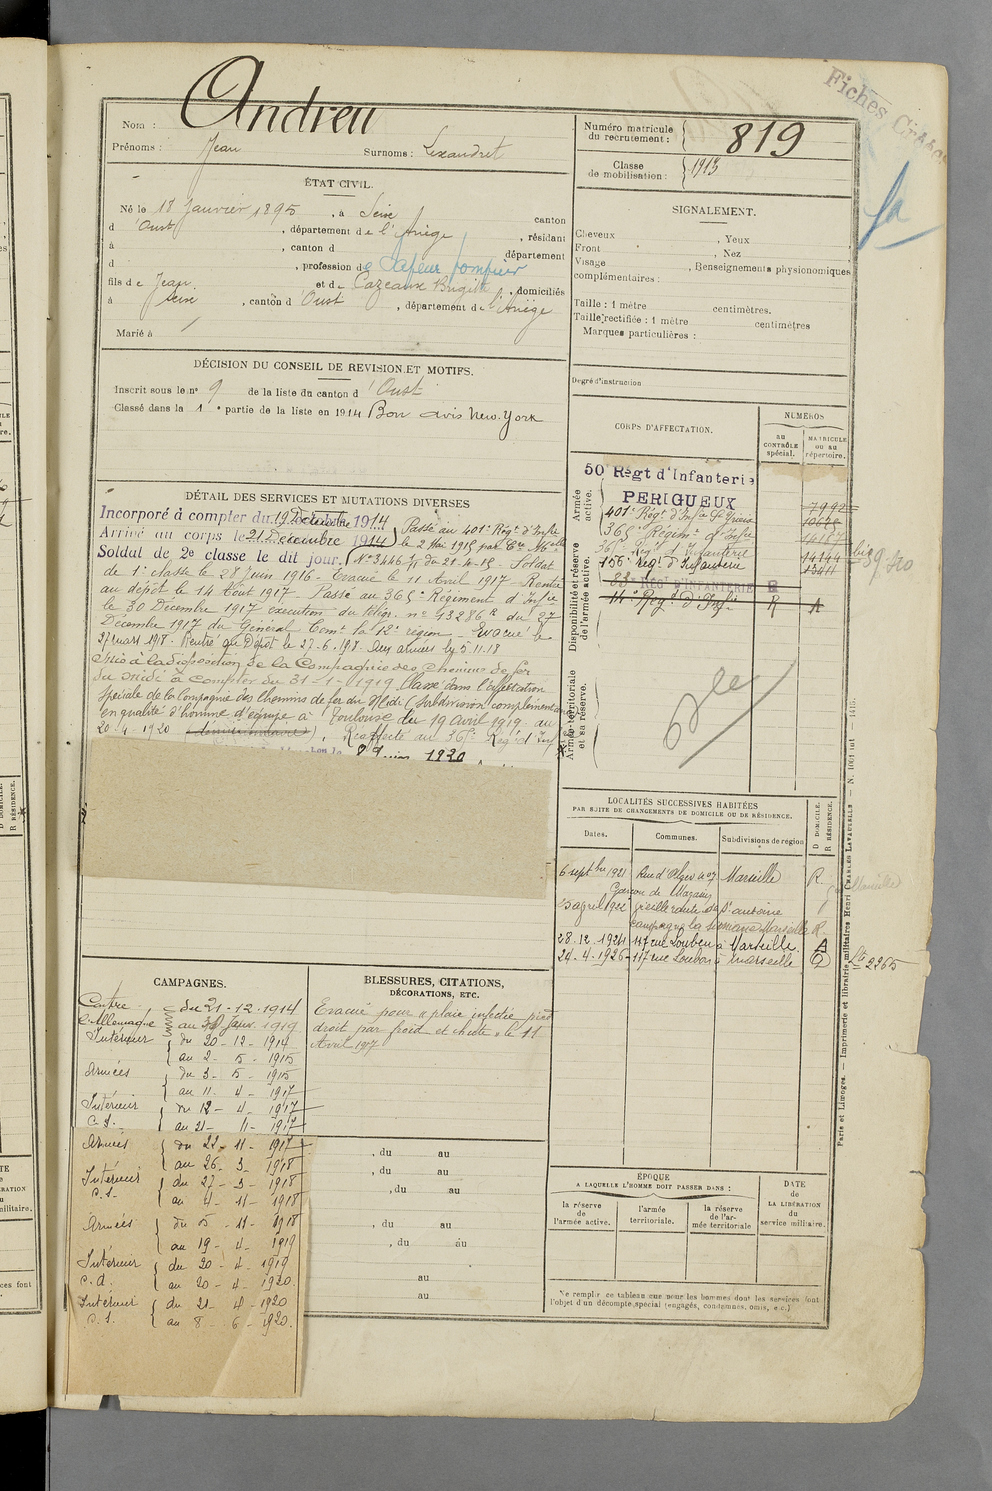 Fiches
Nom : Andreu
Prénoms : Jean Surnoms : Lexandret
Numéro matricule du recrutement : 819
Classe de mobilisation : 1913
ÉTAT CIVIL.
Né le 18 Janvier 1895, à Seix canton
d'Oust, département de l'Ariège, résidant
à , canton d département
d , profession de Sapeur pompier
fils de Jean et de Cazeaux Brigitte, domiciliés
à Seix, canton d'Oust, département de l'Ariège
Marié à
SIGNALEMENT.
Cheveux , Yeux
Front , Nez
Visage , Renseignements physionomiques
complémentaires :
Taille : 1 mètre centimètres.
Taille rectifiée : 1 mètre centimètres
Marques particulières :
Degré d'instruction
DÉCISION DU CONSEIL DE REVISION ET MOTIFS.
Inscrit sous le n° 9 de la liste du canton d'Oust
Classé dans la 1e partie de la liste en 1914 Bon avis New-York
CORPS D'AFFECTATION.
NUMÉROS
au CONTRÔLE spécial.
MATRICULE ou au répertoire.
Armée active.
50 Régt d'Infanterie
PERIGUEUX
401e Régt d'Infie
365 Régim. d'Infie
Disponibilité et réserve de l'armée active.
156e Régt d'Infanterie
83e REGt D'INFANTERIE R
14e Régt d'Infie R A
14144
13411
Armée territoriale et sa réserve.
DÉTAIL DES SERVICES ET MUTATIONS DIVERSES
Incorporé à compter du 19 Décembre 1914
Arrivé au corps le 21 Décembre 1914, Passé au 401e Régt d'Infie
Soldat de 2e classe le dit jour. le 2 Mai 1915 par Cre Mlle
N° 3446 du 21-4-15. Soldat
de 1e classe le 28 Juin 1916 - Evacué le 11 Avril 1917 - Rentré
au dépôt le 14 Août 1917 - Passé au 365e Régiment d'Infie
le 30 Décembre 1917 exécution du télég. n° 43286 R du 27
Décembre 1917 du Général Comt la 12e région - Evacué le
27 mars 1918. Rentré au Dépôt le 27-6-18. Aux armées le 5.11.18
Mis à la disposition de la Compagnie des Chemins de fer
du Midi à compter du 31-1-1919 Classé dans l'affectation
spéciale de la Compagnie des chemins de fer du Midi (Subdivision complémentaire
en qualité d'homme d'équipe à Toulouse du 19 avril 1919 au
20-4-1920 ), Réaffecté au Régt d'Inf
8 Juin 1920
LOCALITÉS SUCCESSIVES HABITÉES
PAR SUITE DE CHANGEMENTS DE DOMICILE OU DE RÉSIDENCE.
Dates. Communes. Subdivisions de région D DOMICILE. R RÉSIDENCE.
6 septbre 1921 Rue d'Alger n° 07 Marseille R.
Garçon de Magasin
avril 1922 vieille route de St antoine
campagne la Marseille R.
28.12.1924 117 rue Loubon à Marseille. A
24.4.1926 117 rue Loubon à Marseille D
2265
CAMPAGNES.
Contre l'Allemagne du 21-12-1914
au 30 Janv. 1919
Intérieur du 20-12-1914
au 2-5-1915
Armées du 3-5-1915
au 11-4-1917
Intérieur du 12-4-1917
C.S. au 21-11-1917
Armées du 22-11-1917
au 26-3-1918
Intérieur du 27-3-1918
C.S. au 4-11-1918
Armées du 5-11-1918
au 19-4-1919
Intérieur du 20-4-1919
C.d. au 20-4-1920.
Intérieur du 21-4-1920
C.S. au 8-6-1920.
BLESSURES, CITATIONS, DÉCORATIONS, ETC.
Evacué pour "plaie infectée pied
droit par froid et chute" le 11
Avril 1917
, du au
, du au
, du au
, du au
, du au
au
au
ÉPOQUE
A LAQUELLE L'HOMME DOIT PASSER DANS :
la réserve de l'armée active.
l'armée territoriale.
la réserve de l'armée territoriale
DATE de LA LIBÉRATION du service militaire.
Ne remplir ce tableau que pour les hommes dont les services font
l'objet d'un décompte spécial (engagés, condamnés, omis, etc.)
Paris et Limoges. — Imprimerie et librairie militaires Henri CHARLES-LAVAUZELLE